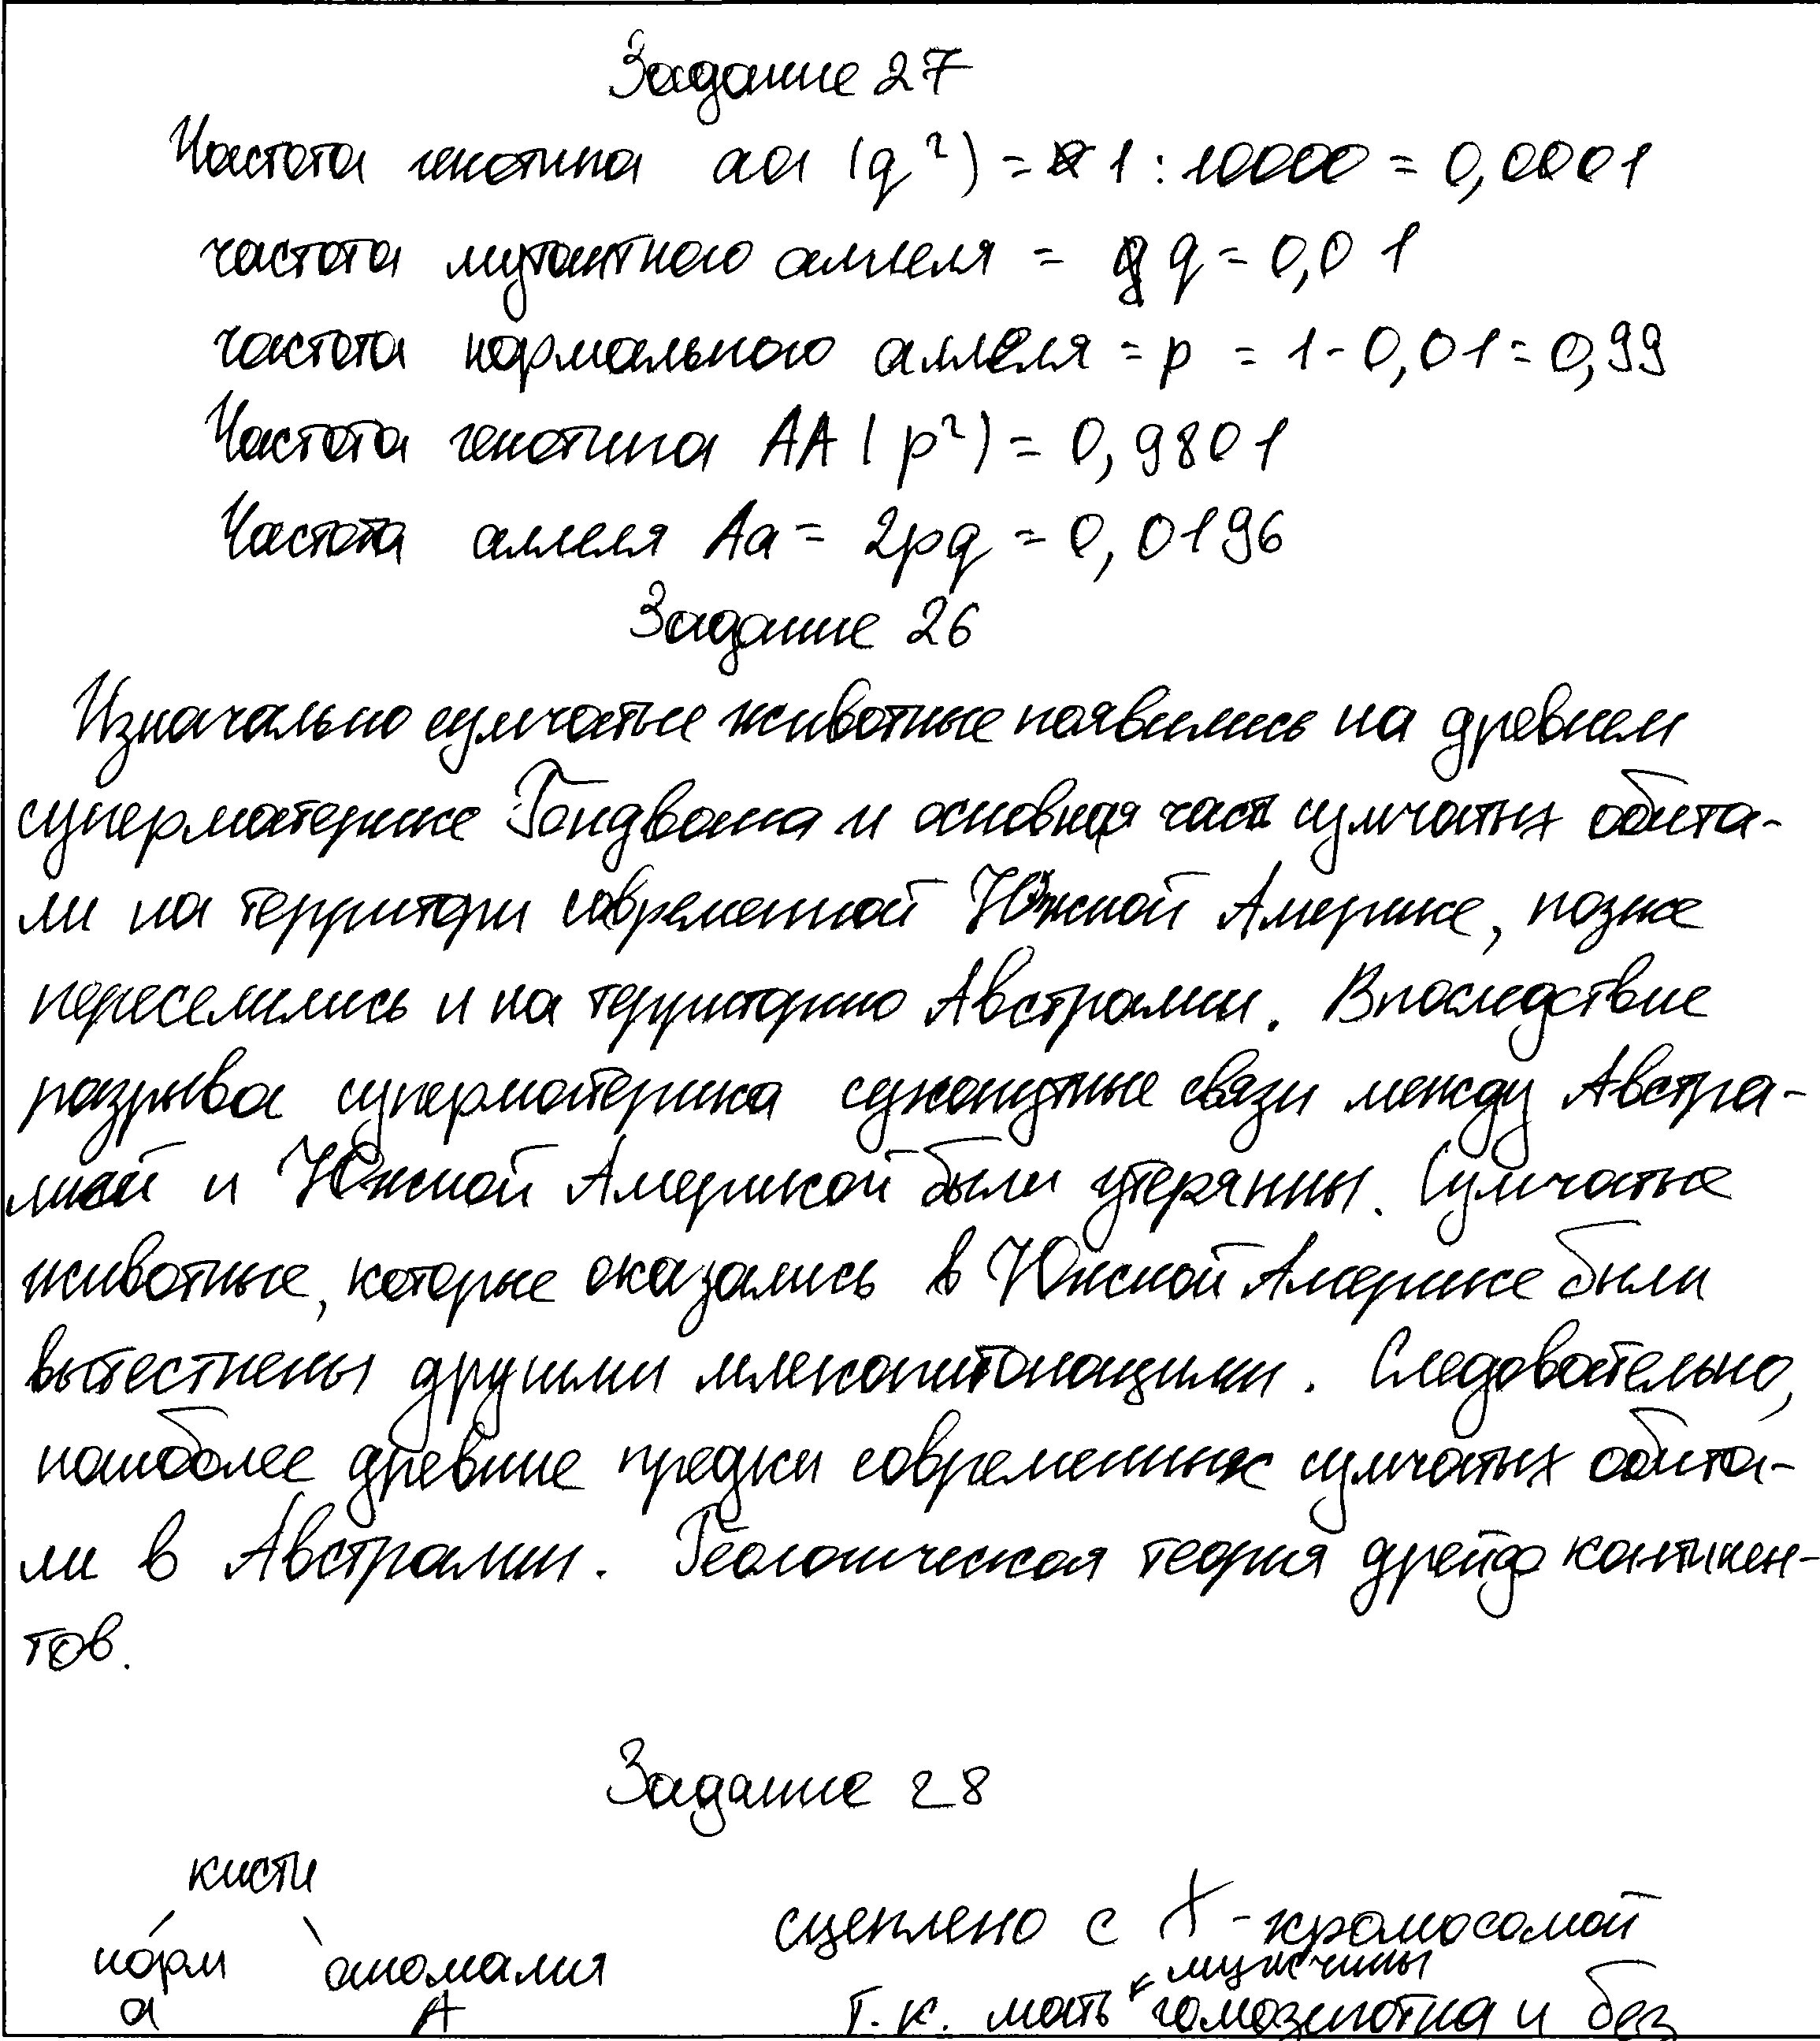 Задание 27
Частота генотипа аа (q²) = 1 : 10000 = 0,0001
частота мутантного аллеля = q = 0,01
частота нормального аллеля = p = 1 - 0,01 = 0,99
Частота генотипа АА (p²) = 0,9801
Частота аллеля Аа = 2pq = 0,0196
Задание 26
Изначально сумчатые животные появились на древнем
суперматерике Гондвана и основная часть сумчатых обита-
ли на территори современной Южной Америке, позже
переселились и на территорию Австралии. Впоследствие
разрыва суперматерика сухопутные связи между Австра-
лией и Южной Америкой были утерянны. Сумчатые
животные, которые оказались в Южной Америке были
вытеснены другими млекопитающими. Следовательно,
наиболее древние предки современных сумчатых обита-
ли в Австралии. Геологическая теория дрейфа континен-
тов.
Задание 28
кисти
норм аномалия
а А
сцеплено с X-хромосомой
мужчины
т.к. мать гомозиготна и без